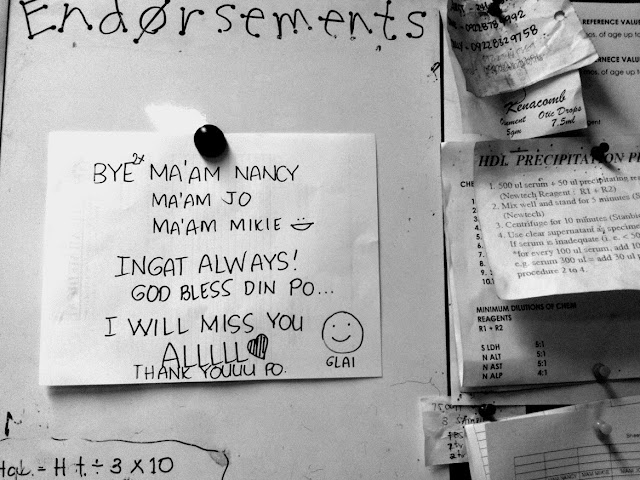 Endorsements
BYE 2x MA'AM NANCY
MA'AM JO
MA'AM MIKIE
INGAT ALWAYS!
GOD BLESS DIN PO...
I WILL MISS YOU
ALLLLL
THANK YOUUU PO.
GLAI
= Ht ÷ 3 X 10
09228329758
Kenacomb
Otic Drops
5gm 7.5ml
REFERENCE VALU
of age up to
HDL PRECIPITATION P
1. 500 ul serum + 50 ul precipitating
(Newtech Reagent : R1 + R2)
2. Mix well and stand for 5 minutes
(Newtech)
3. Centrifuge for 10 minutes
4. Use clear supernatant as specimen
If serum is inadequate (i. e. < 50
*for every 100 ul serum, add
e.g. serum 300 ul = add 30 ul
procedure 2 to 4.
MINIMUM DILUTIONS OF CHEM
REAGENTS
R1 + R2
S LDH 5:1
N ALT 5:1
N AST 5:1
N ALP 4:1